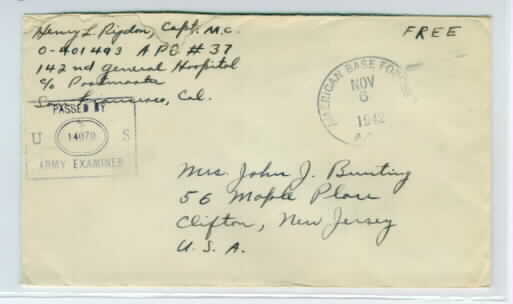 Henry L Rigdon, Capt. M.C.
O-401493 APO #37
142nd General Hospital
c/o Postmaster
San Francisco, Cal.
FREE
AMERICAN BASE FORCES
NOV
6
1942
PASSED BY
U 14070 S
ARMY EXAMINER
Mrs. John J. Bunting
56 Maple Place
Clifton, New Jersey
U.S.A.